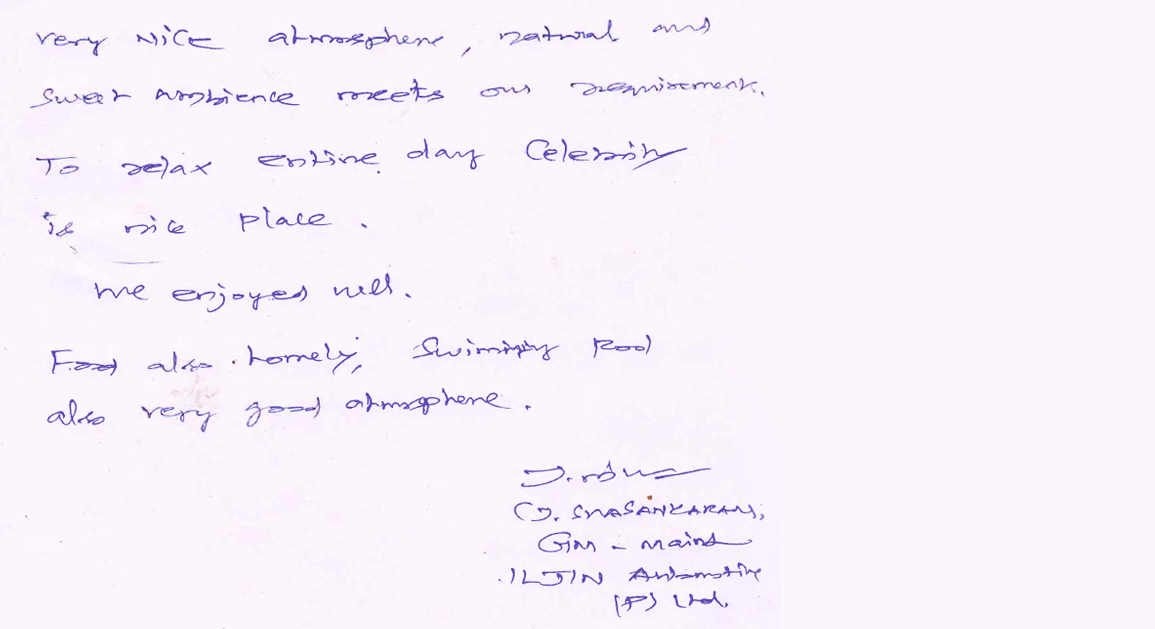 very NiCE atmosphere, natural and
Sweet Ambience meets our requirement.
To relax entire day Celebrity
is nice place.
We enjoyed well.
Food also homely, Swimming Pool
also very good atmosphere.
(J. SIVASANKARAN,
GM - Maint
ILJIN Automotive
(P) Ltd.